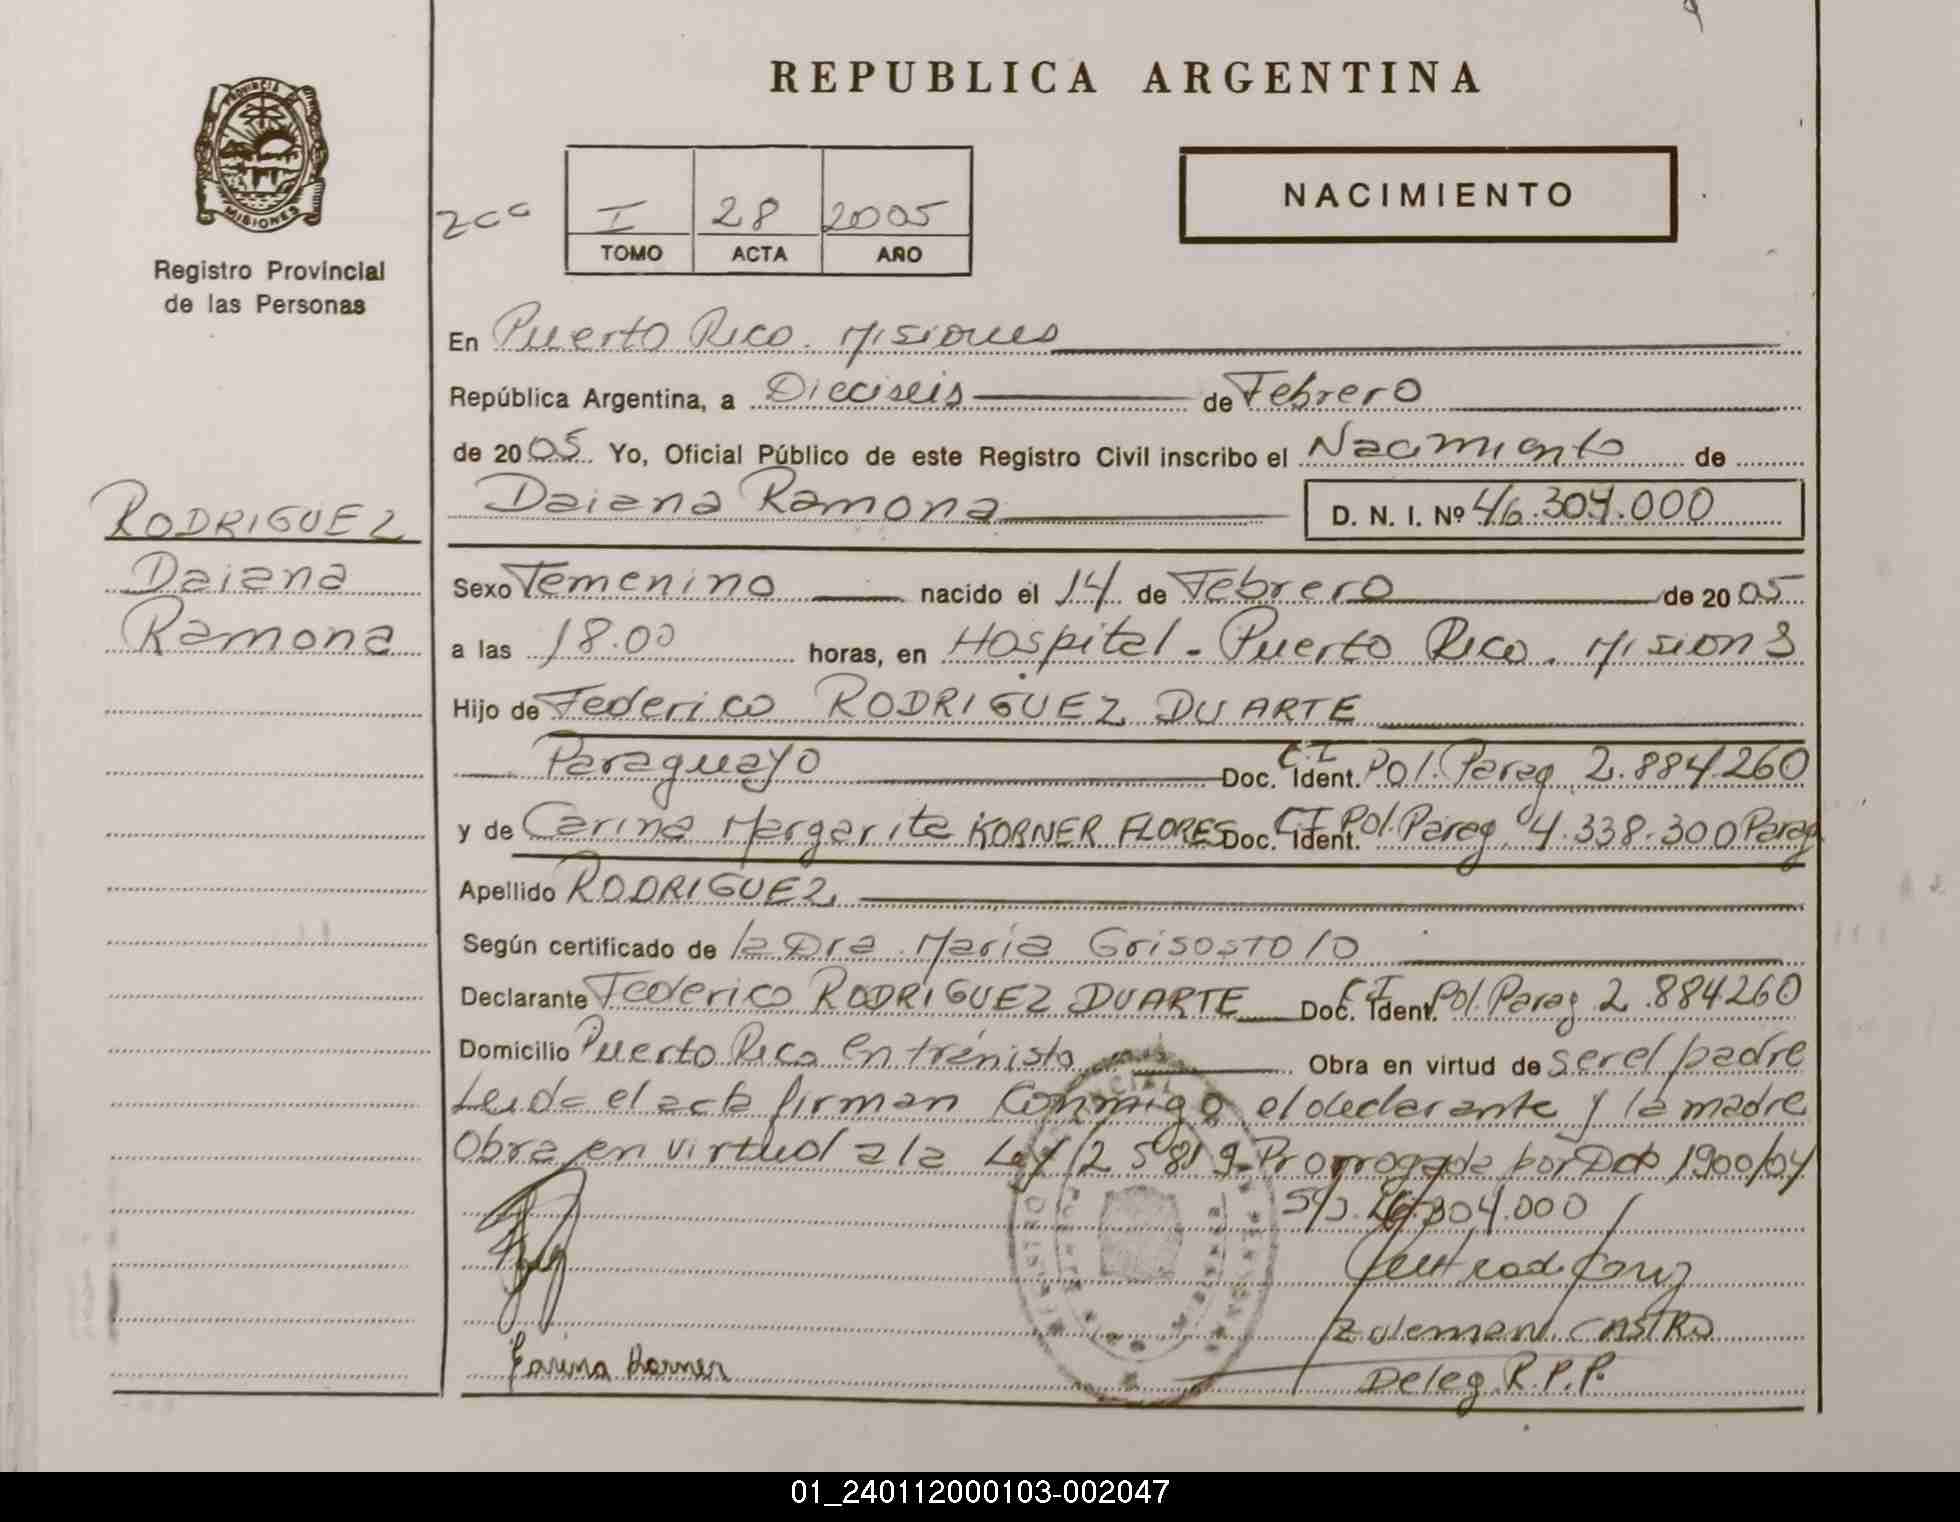 REPUBLICA ARGENTINA
PROVINCIA DE MISIONES
Registro Provincial
de las Personas
I 28 2005
TOMO ACTA AÑO
NACIMIENTO
En Puerto Rico. Misiones
República Argentina, a Dieciseis de Febrero
de 2005 Yo, Oficial Público de este Registro Civil inscribo el Nacimiento de
Daiana Ramona D. N. I. Nº 46.304.000
RODRIGUEZ
Daiana
Ramona
Sexo Femenino nacido el 14 de Febrero de 2005
a las 18.00 horas, en Hospital - Puerto Rico. Misions
Hijo de Federico RODRIGUEZ DUARTE
Paraguayo Doc. Ident. C.I Pol. Parag. 2.884.260
y de Carina Margarita KORNER FLORES Doc. Ident. C.I Pol. Parag. 4.338.300 Parag
Apellido RODRIGUEZ
Según certificado de la Dra. Maria Grisostolo
Declarante Federico RODRIGUEZ DUARTE Doc. Ident. C.I Pol. Parag 2.884260
Domicilio Puerto Rico Obra en virtud de ser el padre
Leida el acta firman Conmigo el declarante y la madre
Obra en virtud a la Ley 25819 Prorrogada por Dcto 1900/04
46.304.000
Carina Korner
CASTRO
Deleg. R.P.P.
01_240112000103-002047